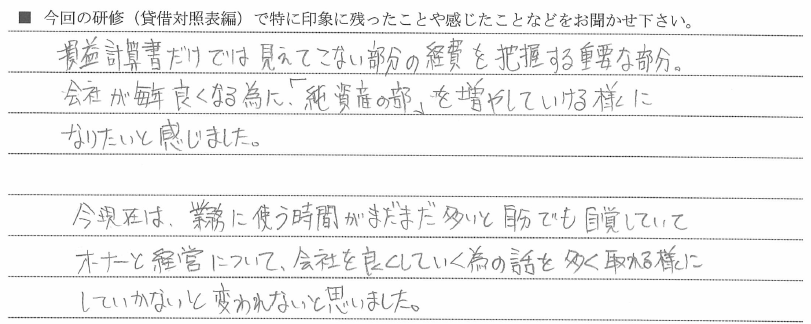 ■ 今回の研修（貸借対照表編）で特に印象に残ったことや感じたことなどをお聞かせ下さい。
損益計算書だけでは見えてこない部分の経費を把握する重要な部分。
会社が毎年良くなる為に、「純資産の部」を増やしていける様に
なりたいと感じました。
今現在は、業務に使う時間がまだまだ多いと自分でも自覚していて
オーナーと経営について、会社を良くしていく為の話を多く取れる様に
していかないと変われないと思いました。